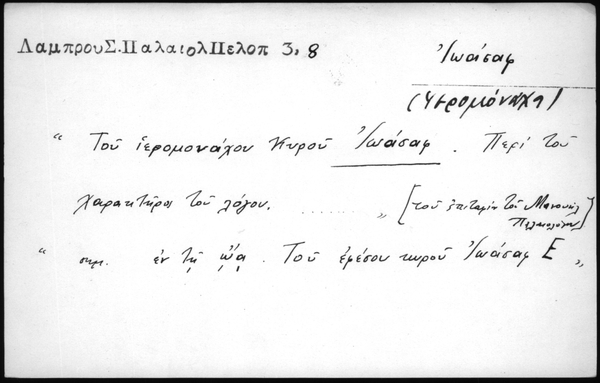 ΛαμπρουΣ.ΠαλαιολΠελοπ 3, 8
Ἰωάσαφ
(Ἱερομόναχ)
“ Τοῦ ἱερομονάχου Κυροῦ Ἰωάσαφ. Περί τοῦ
χαρακτῆρος τοῦ λόγου. .......... „ [τοῦ ἐπιταφίου τοῦ Μανουήλ
Παλαιολόγου]
“ σημ. ἐν τῇ ᾤᾳ. Τοῦ ἐφέσου κυροῦ Ἰωάσαφ Ε „